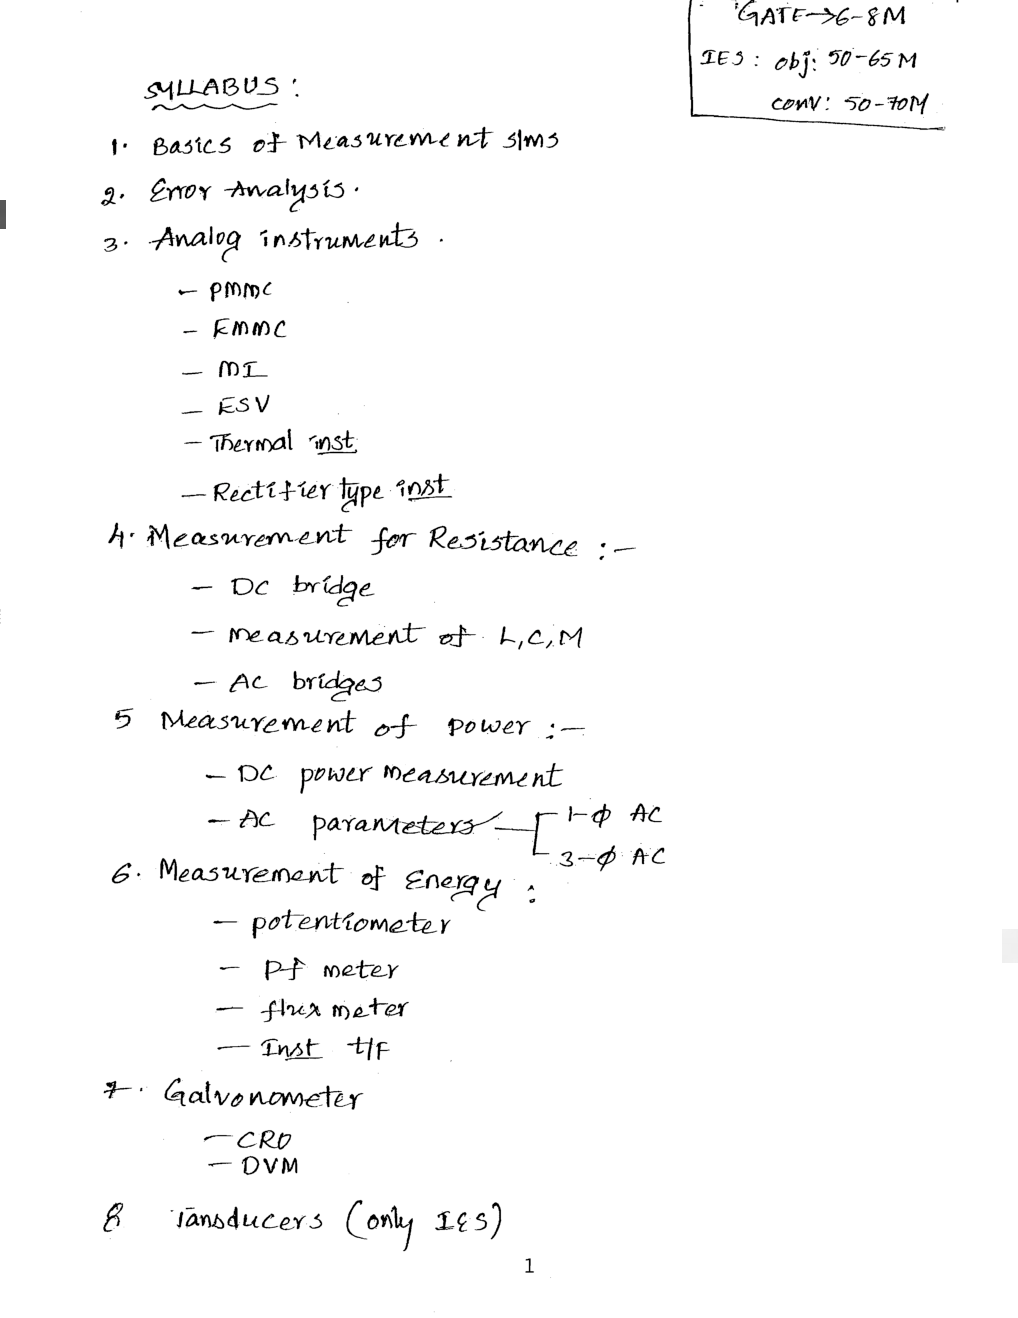 GATE→6-8M
IES: obj: 50-65M
conv: 50-70M
SYLLABUS:
1. Basics of Measurement s/ms
2. Error Analysis.
3. Analog instruments.
- PMMC
- EMMC
- MI
- ESV
- Thermal inst.
- Rectifier type inst
4. Measurement for Resistance :-
- DC bridge
- measurement of L,C,M
- AC bridges
5 Measurement of power :-
- DC power measurement
- AC parameters
1-ϕ AC
3-ϕ AC
6. Measurement of Energy :
- potentiometer
- Pf meter
- flux meter
- Inst t/F
7. Galvonometer
- CRO
- DVM
8 Tansducers (only IES)
1